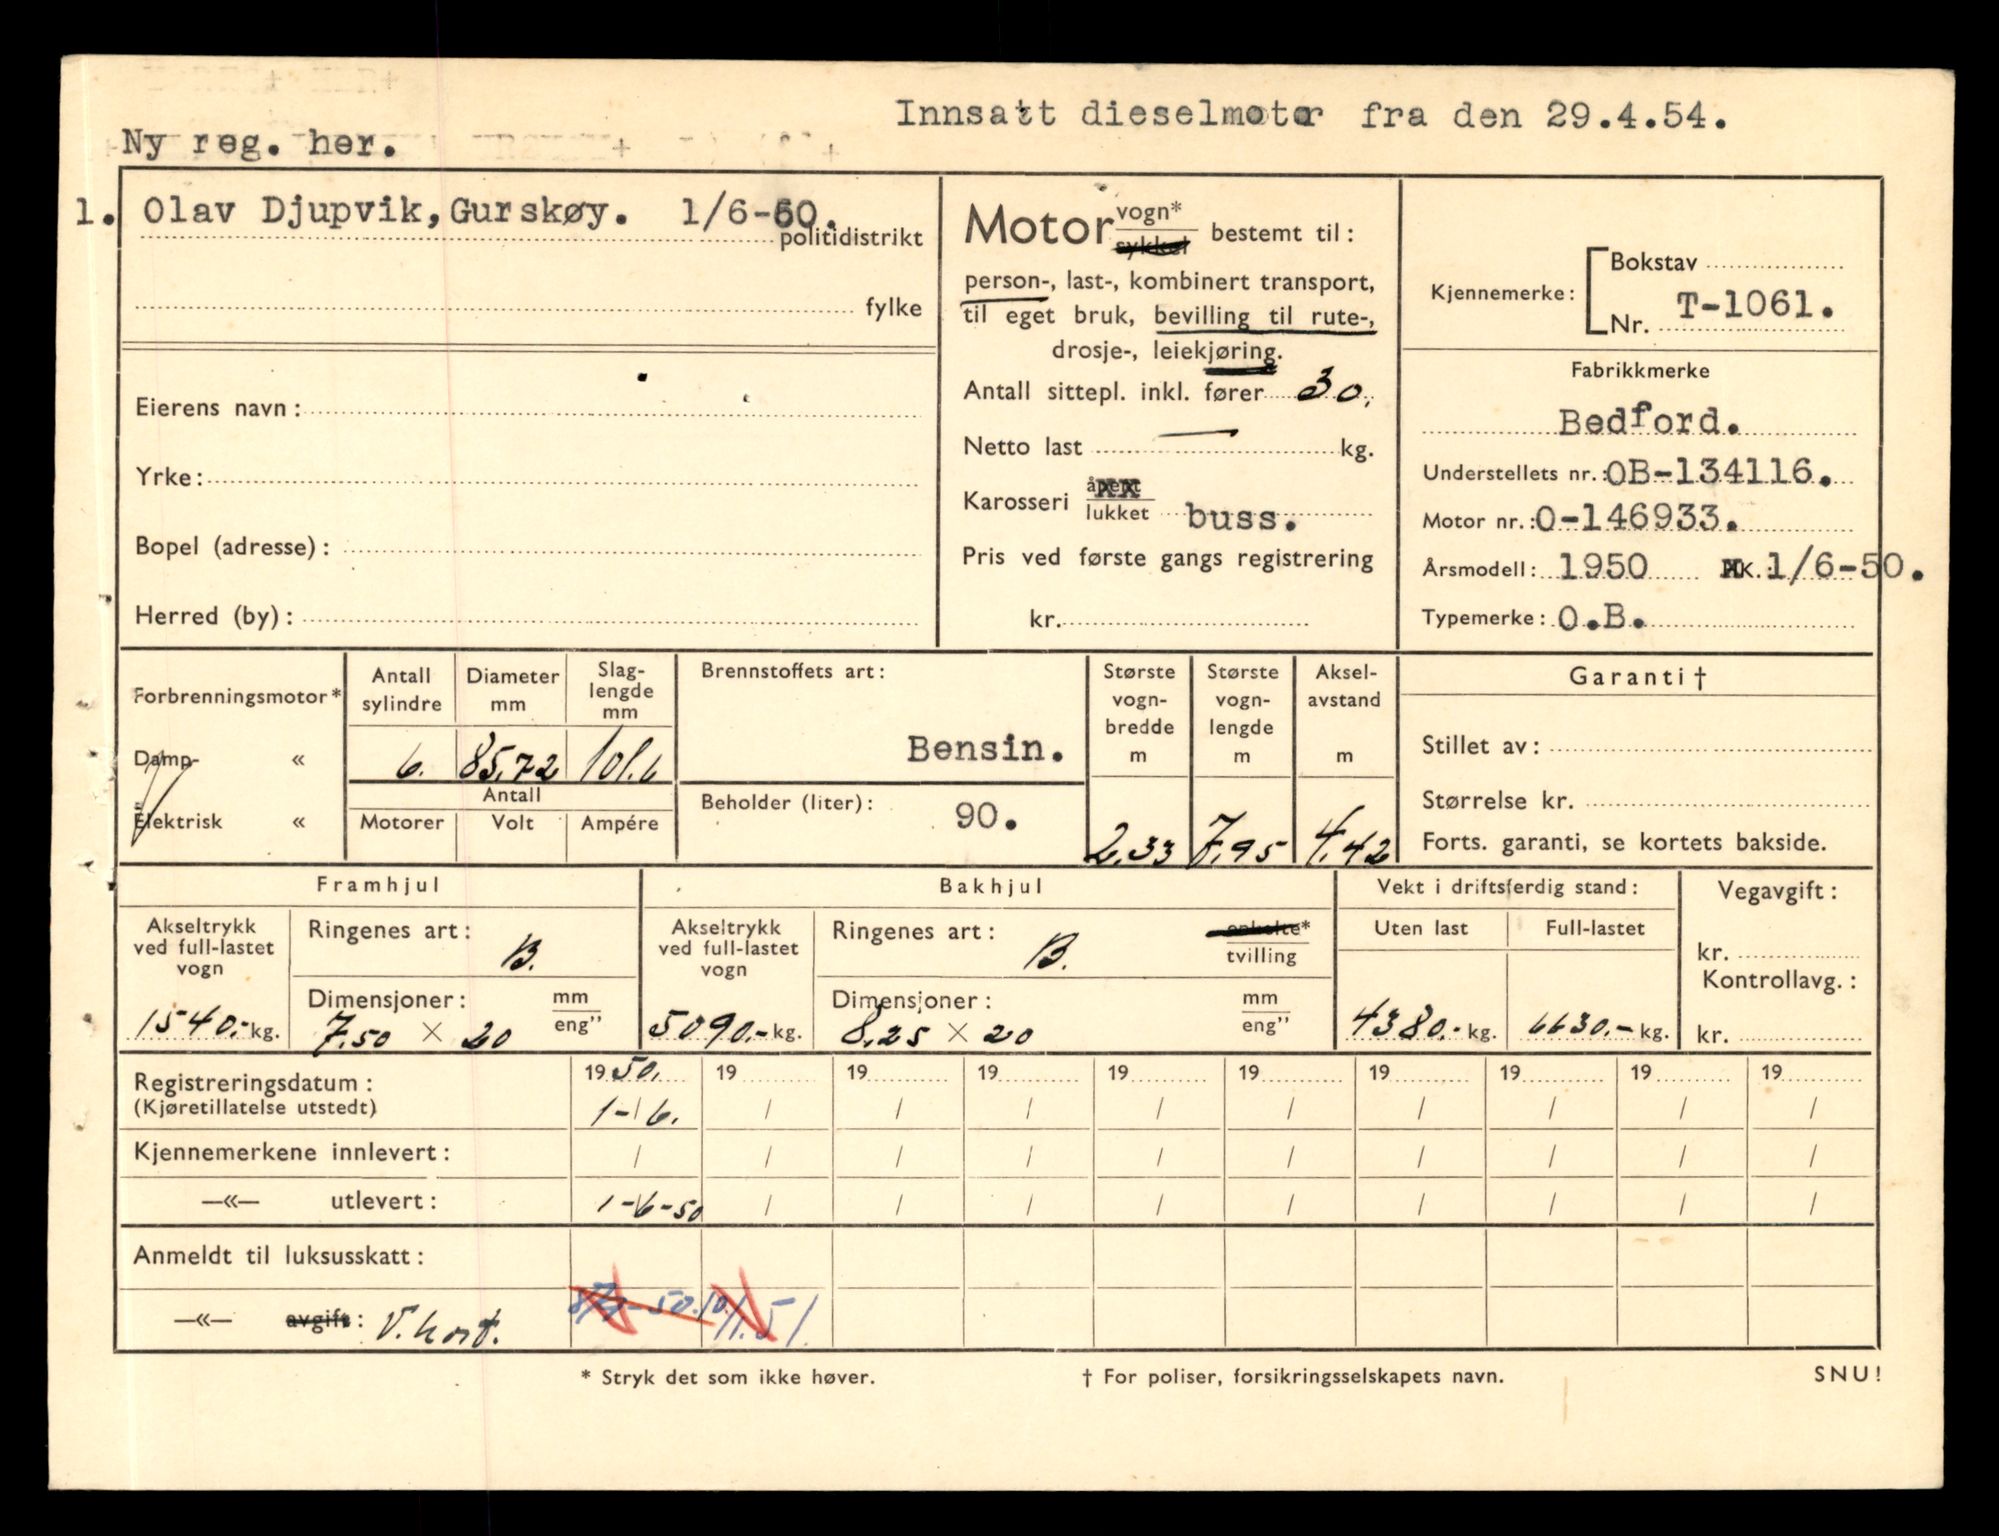 Innsatt dieselmotor fra den 29.4.54.
Ny reg. her.
1. Olav Djupvik, Gurskøy. 1/6-50.
politidistrikt
fylke
Eierens navn:
Yrke:
Bopel (adresse):
Herred (by):
Motor vogn* sykkel bestemt til:
person-, last-, kombinert transport,
til eget bruk, bevilling til rute-,
drosje-, leiekjøring.
Antall sittepl. inkl. fører 30.
Netto last — kg.
Karosseri åpent lukket buss.
Pris ved første gangs registrering
kr.
Kjennemerke: Bokstav
Nr. T-1061.
Fabrikkmerke
Bedford.
Understellets nr.: OB-134116.
Motor nr.: O-146933.
Årsmodell: 1950 K.: 1/6-50.
Typemerke: O.B.
Forbrenningsmotor*
Damp- «
Elektrisk «
Antall sylindre
Diameter mm
Slag-lengde mm
6. 85,72 101,6
Antall
Motorer Volt Ampére
Brennstoffets art:
Bensin.
Beholder (liter): 90.
Største vogn-bredde m
Største vogn-lengde m
Aksel-avstand m
2,33 7,95 4,42
Garanti †
Stillet av:
Størrelse kr.
Forts. garanti, se kortets bakside.
Framhjul
Akseltrykk ved full-lastet vogn
1540.- kg.
Ringenes art: B.
Dimensjoner: mm eng"
7,50 × 20
Bakhjul
Akseltrykk ved full-lastet vogn
5090.- kg.
Ringenes art: B. enkelte* tvilling
Dimensjoner: mm eng"
8,25 × 20
Vekt i driftsferdig stand:
Uten last Full-lastet
4380.- kg. 6630.- kg.
Vegavgift:
kr.
Kontrollavg.:
kr.
Registreringsdatum: 1950. 19 19 19 19 19 19 19 19 19
(Kjøretillatelse utstedt) 1-/6. / / / / / / / / /
Kjennemerkene innlevert: / / / / / / / / / /
—«— utlevert: 1-6-50 / / / / / / / / /
Anmeldt til luksusskatt:
—«— avgift: V.kort.
* Stryk det som ikke høver.
† For poliser, forsikringsselskapets navn.
SNU!